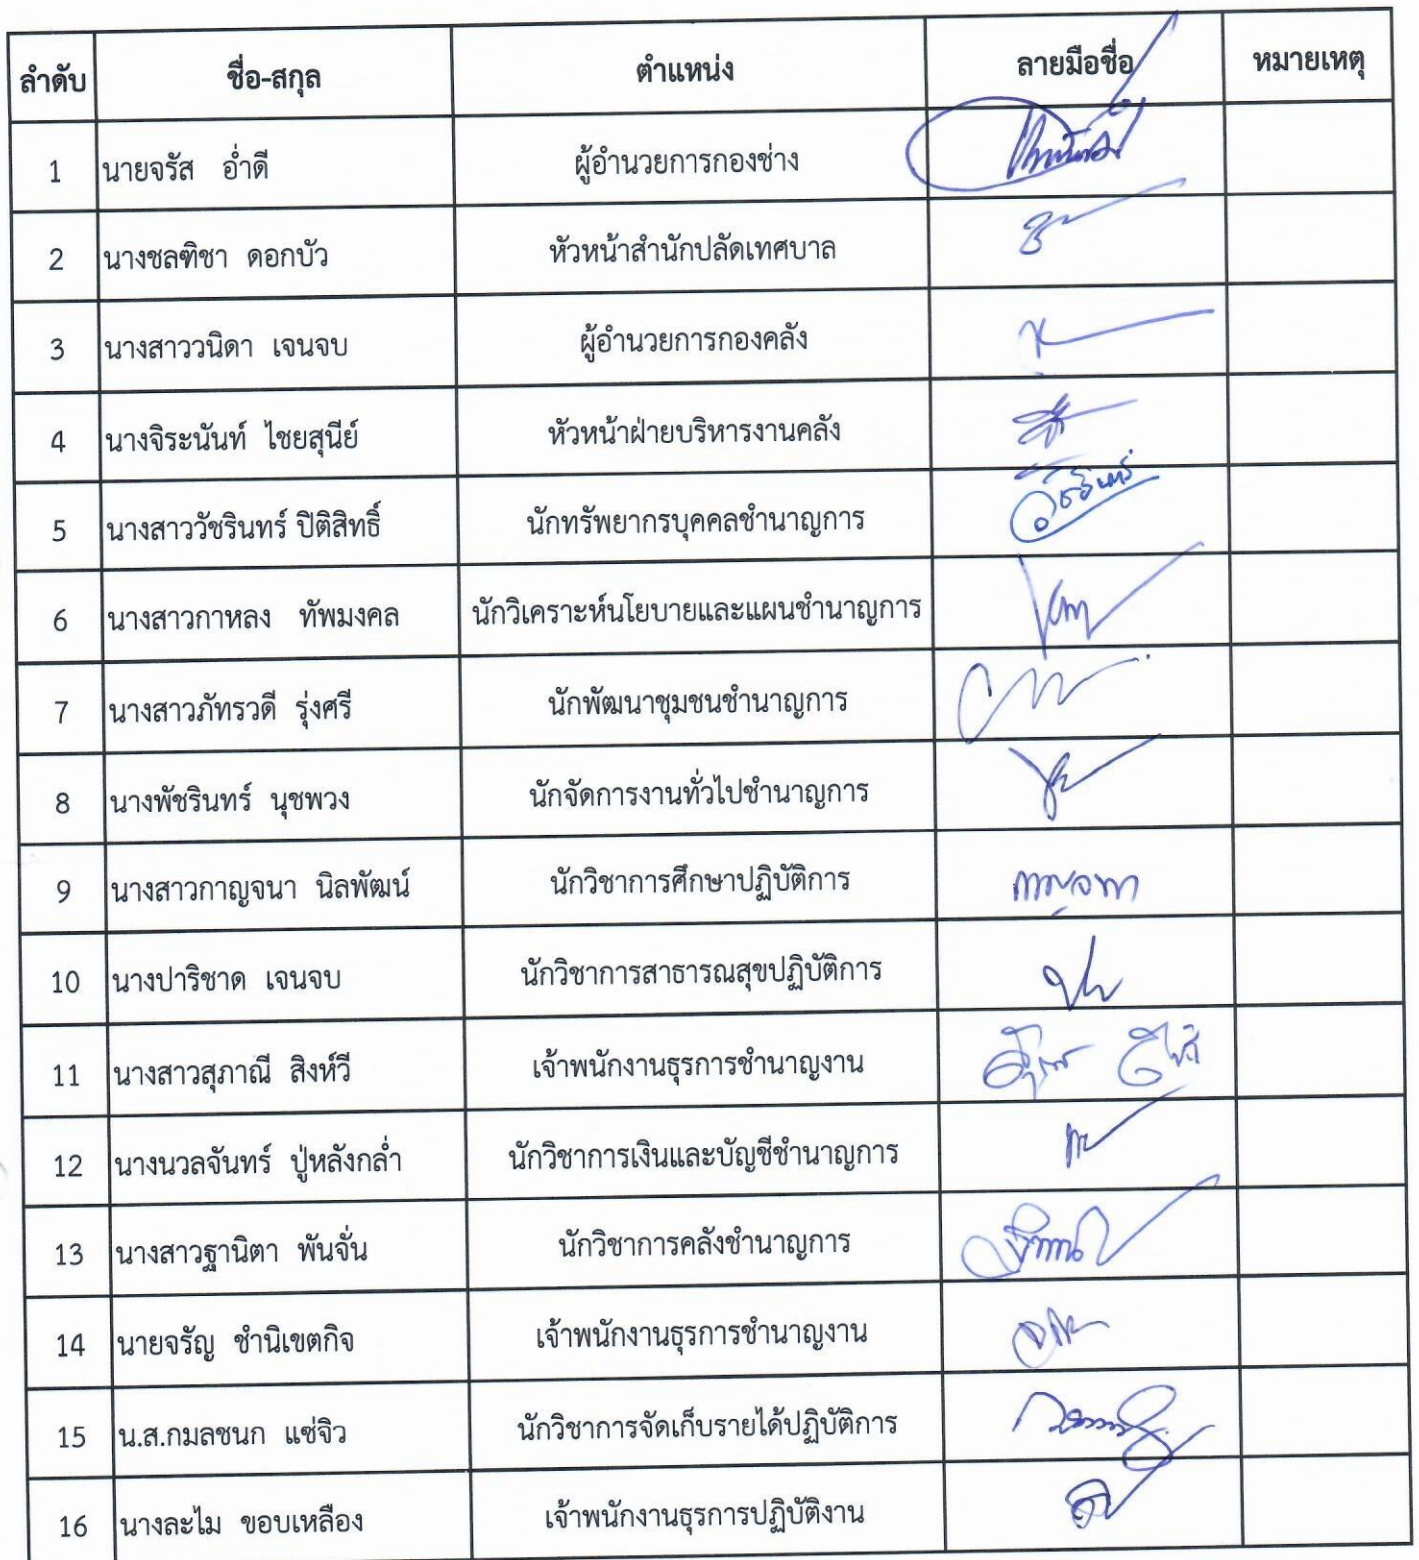 ลำดับ ชื่อ-สกุล ตำแหน่ง ลายมือชื่อ หมายเหตุ
1 นายจรัส อ่ำดี ผู้อำนวยการกองช่าง
2 นางชลฑิชา ดอกบัว หัวหน้าสำนักปลัดเทศบาล
3 นางสาววนิดา เจนจบ ผู้อำนวยการกองคลัง
4 นางจิระนันท์ ไชยสุนีย์ หัวหน้าฝ่ายบริหารงานคลัง
5 นางสาววัชรินทร์ ปิติสิทธิ์ นักทรัพยากรบุคคลชำนาญการ
6 นางสาวกาหลง ทัพมงคล นักวิเคราะห์นโยบายและแผนชำนาญการ
7 นางสาวภัทรวดี รุ่งศรี นักพัฒนาชุมชนชำนาญการ
8 นางพัชรินทร์ นุชพวง นักจัดการงานทั่วไปชำนาญการ
9 นางสาวกาญจนา นิลพัฒน์ นักวิชาการศึกษาปฏิบัติการ กาญจนา
10 นางปาริชาด เจนจบ นักวิชาการสาธารณสุขปฏิบัติการ
11 นางสาวสุภาณี สิงห์วี เจ้าพนักงานธุรการชำนาญงาน
12 นางนวลจันทร์ ปู่หลังกล่ำ นักวิชาการเงินและบัญชีชำนาญการ
13 นางสาวฐานิตา พันจั่น นักวิชาการคลังชำนาญการ
14 นายจรัญ ชำนิเขตกิจ เจ้าพนักงานธุรการชำนาญงาน
15 น.ส.กมลชนก แซ่จิว นักวิชาการจัดเก็บรายได้ปฏิบัติการ
16 นางละไม ขอบเหลือง เจ้าพนักงานธุรการปฏิบัติงาน